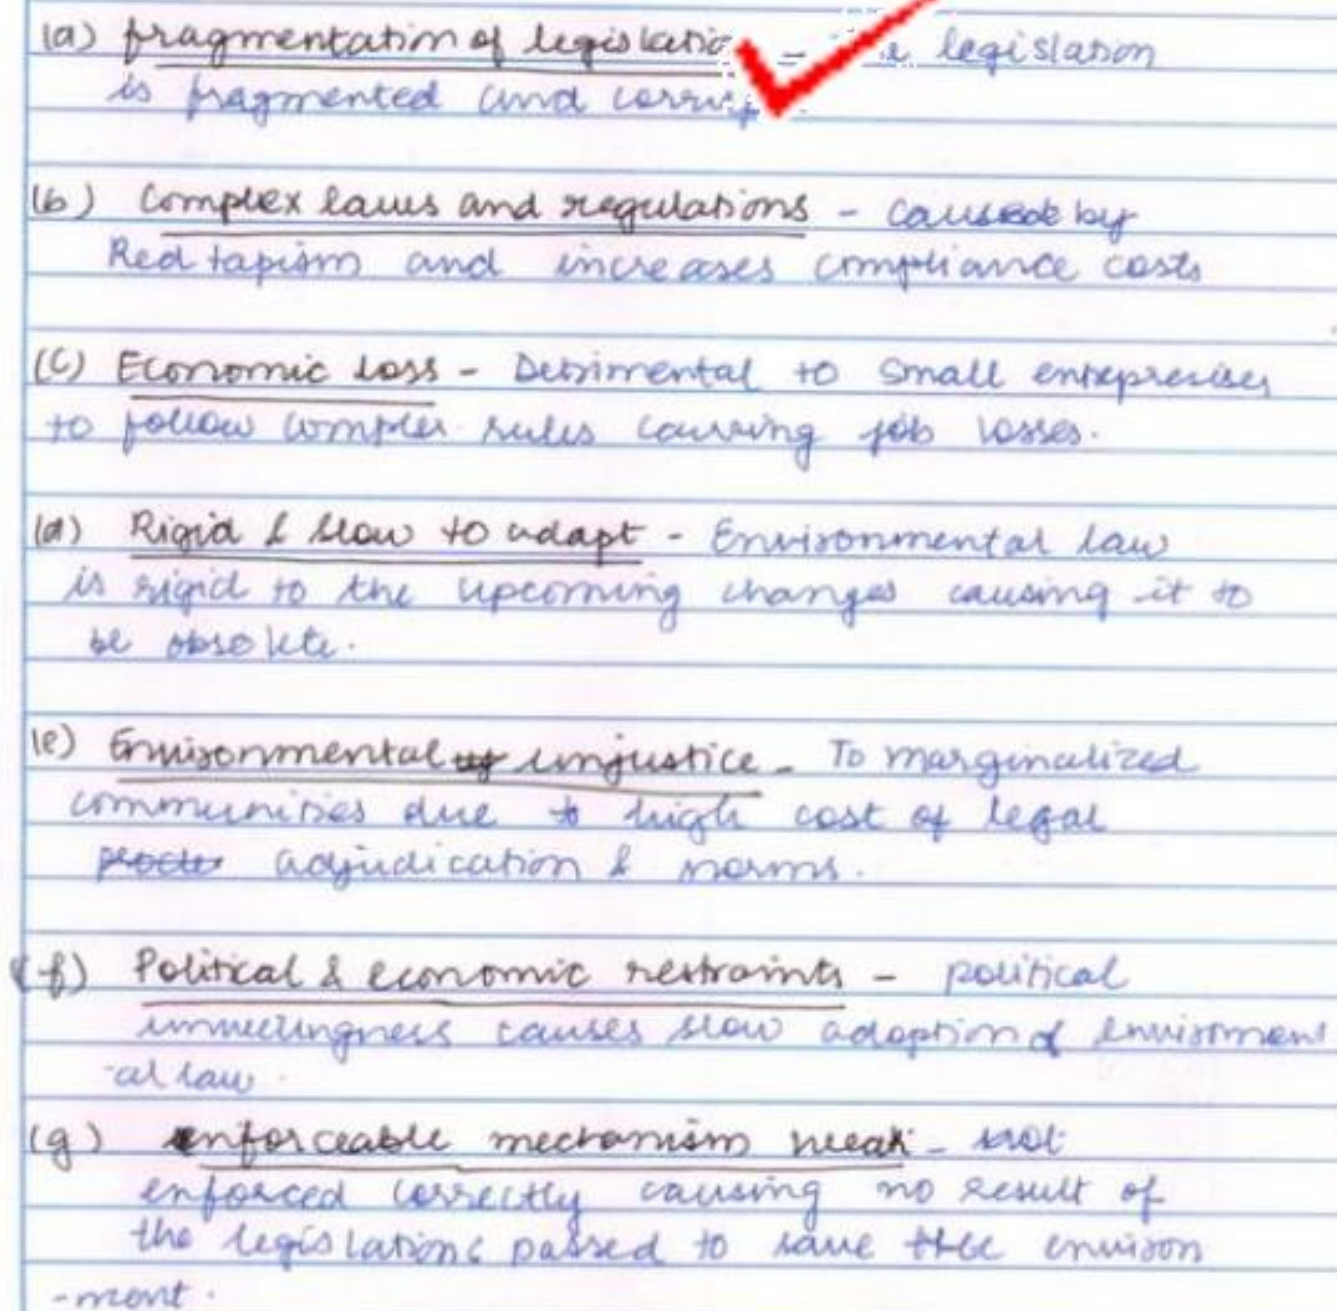 (a) fragmentation of legislatio - legislation
is fragmented and
(b) Complex laws and regulations - caused by
Red tapism and increases compliance costs
(C) Economic loss - Detrimental to small entepreises
to follow complex rules causing job losses.
(d) Rigid & slow to adapt - Environmental law
is rigid to the upcoming changes causing it to
be obsolete.
(e) Environmental unjustice - To marginalized
communities due to high cost of legal
adjudication & norms.
(f) Political & economic restraints - political
unwillingness causes slow adoption of environment
-al law.
(g) enforceable mechanism weak - not
enforced correctly causing no result of
the legislations passed to save the environ
-ment.